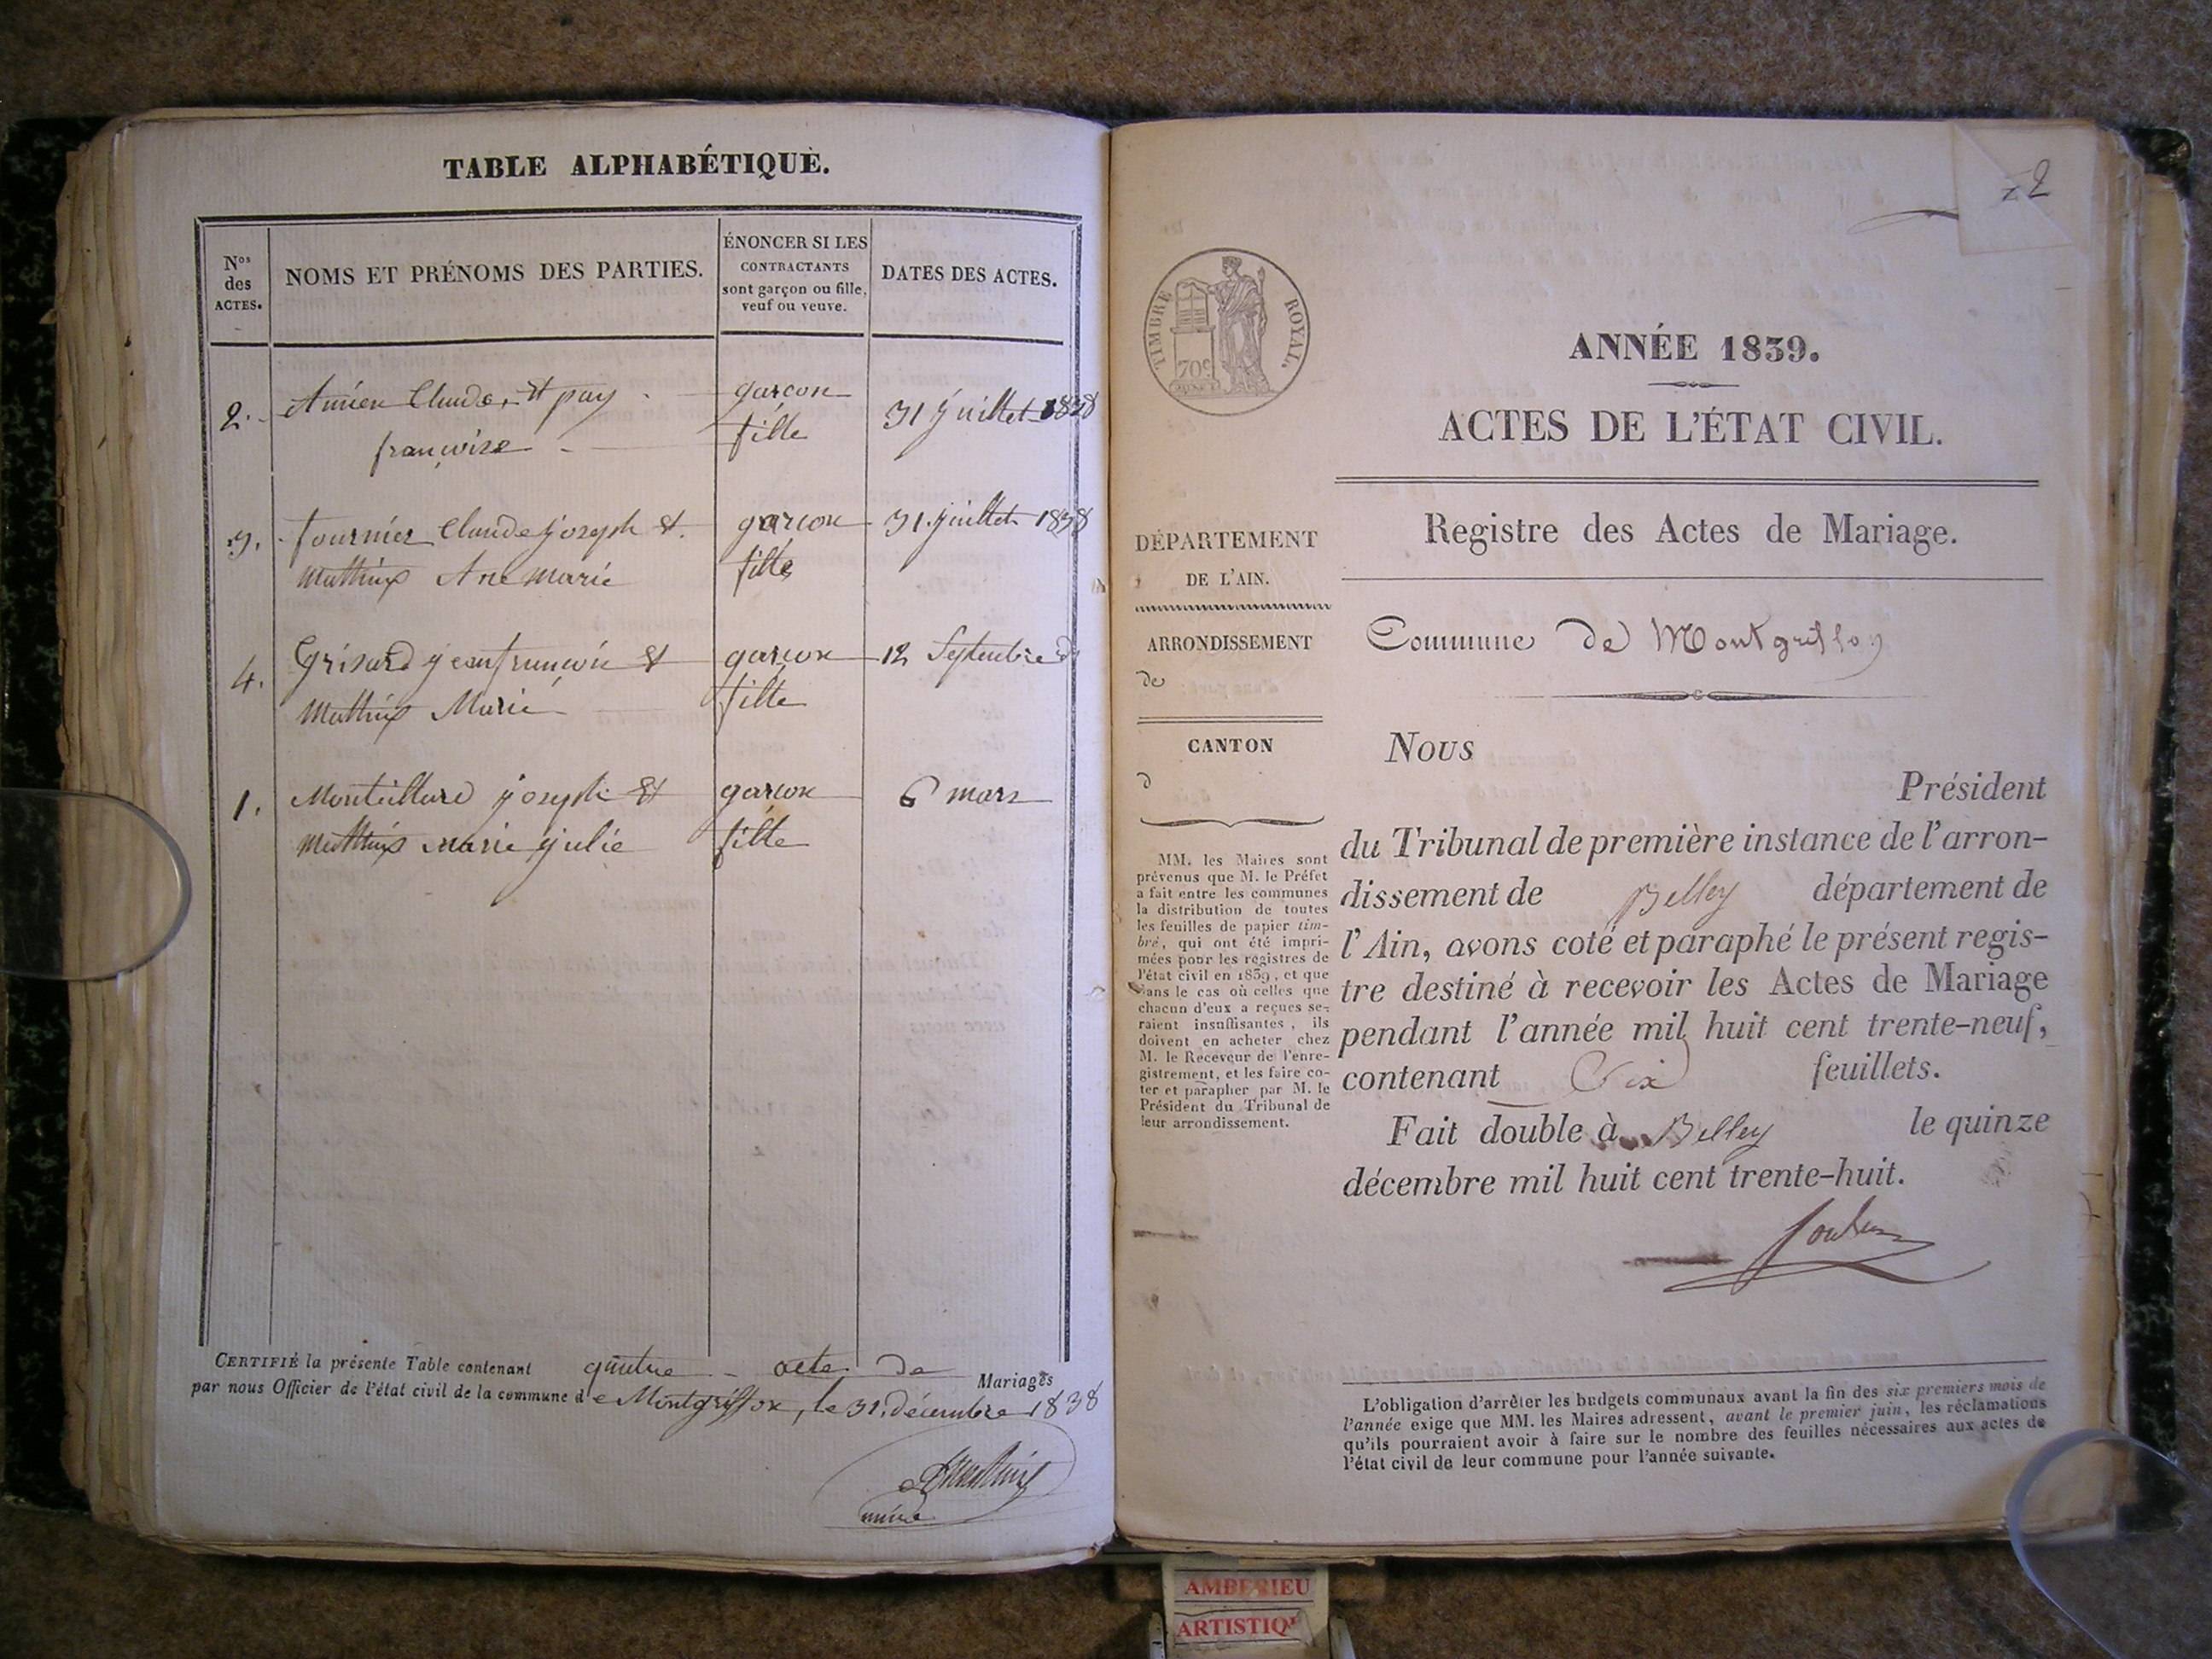 TABLE ALPHABÉTIQUE.
Nos des ACTES.
NOMS ET PRÉNOMS DES PARTIES.
ÉNONCER SI LES
CONTRACTANTS
sont garçon ou fille,
veuf ou veuve.
DATES DES ACTES.
2. Claude, et pay garcon 31 juillet 1838
françoise fille
3. fournier Claude joseph et garcon 31 juillet 1838
Mathieu Ane Marie fille
4. Grisard jean françois et garcon 12 Septembre
Mathieu Marie fille
1. joseph et garcon 6 mars
Mathieu Marie julie fille
CERTIFIÉ la présente Table contenant quatre acte de Mariages
par nous Officier de l'état civil de la commune de Montgriffon, le 31 décembre 1838
maire
22
TIMBRE ROYAL.
70c
ANNÉE 1839.
ACTES DE L'ÉTAT CIVIL.
Registre des Actes de Mariage.
Commune de Montgriffon
DÉPARTEMENT
DE L'AIN.
ARRONDISSEMENT
de
CANTON
d
MM. les Maires sont
prévenus que M. le Préfet
a fait entre les communes
la distribution de toutes
les feuilles de papier tim-
bré, qui ont été impri-
mées pour les registres de
l'état civil en 1839, et que
dans le cas où celles que
chacun d'eux a reçues se-
raient insuffisantes, ils
doivent en acheter chez
M. le Receveur de l'enre-
gistrement, et les faire co-
ter et parapher par M. le
Président du Tribunal de
leur arrondissement.
Nous
Président
du Tribunal de première instance de l'arron-
dissement de Belley département de
l'Ain, avons coté et paraphé le présent regis-
tre destiné à recevoir les Actes de Mariage
pendant l'année mil huit cent trente-neuf,
contenant Six feuillets.
Fait double à Belley le quinze
décembre mil huit cent trente-huit.
L'obligation d'arrêter les budgets communaux avant la fin des six premiers mois de
l'année exige que MM. les Maires adressent, avant le premier juin, les réclamations
qu'ils pourraient avoir à faire sur le nombre des feuilles nécessaires aux actes de
l'état civil de leur commune pour l'année suivante.
AMBERIEU
ARTISTIQU